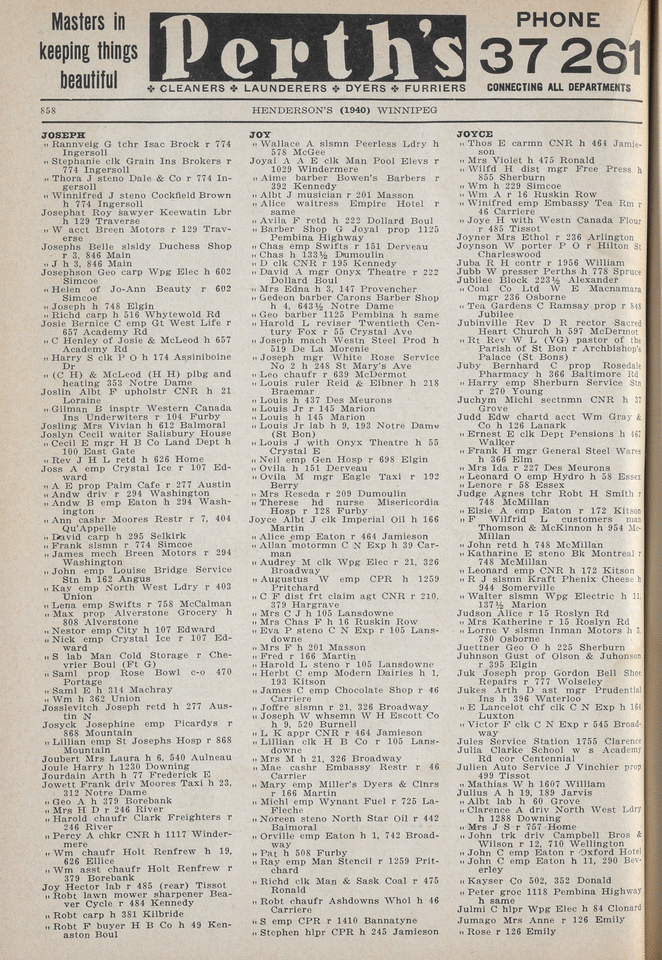 Masters in
keeping things
beautiful
Perth's
CLEANERS ✤ LAUNDERERS ✤ DYERS ✤ FURRIERS
PHONE
37 261
CONNECTING ALL DEPARTMENTS
858
HENDERSON'S (1940) WINNIPEG
JOSEPH
„ Rannveig G tchr Isac Brock r 774
Ingersoll
„ Stephanie clk Grain Ins Brokers r
774 Ingersoll
„ Thora J steno Dale & Co r 774 In-
gersoll
„ Winnifred J steno Cockfield Brown
h 774 Ingersoll
Josephat Roy sawyer Keewatin Lbr
h 129 Traverse
„ W acct Breen Motors r 129 Trav-
erse
Josephs Belle slsldy Duchess Shop
r 3, 846 Main
„ J h 3, 846 Main
Josephson Geo carp Wpg Elec h 602
Simcoe
„ Helen of Jo-Ann Beauty r 602
Simcoe
„ Joseph h 748 Elgin
„ Richd carp h 516 Whytewold Rd
Josie Bernice C emp Gt West Life r
657 Academy Rd
„ C Henley of Josie & McLeod h 657
Academy Rd
„ Harry S clk P O h 174 Assiniboine
Dr
„ (C H) & McLeod (H H) plbg and
heating 353 Notre Dame
Joslin Albt F upholstr CNR h 21
Loraine
„ Gilman B insptr Western Canada
Ins Underwiters r 104 Furby
Josling Mrs Vivian h 612 Balmoral
Joslyn Cecil waiter Salisbury House
„ Cecil E mgr H B Co Land Dept h
100 East Gate
„ Rev J H L retd h 626 Home
Joss A emp Crystal Ice r 107 Ed-
ward
„ A E prop Palm Cafe r 277 Austin
„ Andw driv r 294 Washington
„ Andw B emp Eaton h 294 Wash-
ington
„ Ann cashr Moores Restr r 7, 404
Qu'Appelle
„ David carp h 295 Selkirk
„ Frank slsmn r 774 Simcoe
„ James mech Breen Motors r 294
Washington
„ John emp Louise Bridge Service
Stn h 162 Angus
„ Kay emp North West Ldry r 403
Union
„ Lena emp Swifts r 758 McCalman
„ Max prop Alverstone Grocery h
808 Alverstone
„ Nestor emp City h 107 Edward
„ Nick emp Crystal Ice r 107 Ed-
ward
„ S lab Man Cold Storage r Che-
vrier Boul (Ft G)
„ Saml prop Rose Bowl c-o 470
Portage
„ Saml E h 314 Machray
„ Wm h 362 Union
Josslevitch Joseph retd h 277 Aus-
tin N
Josyck Josephine emp Picardys r
868 Mountain
„ Lillian emp St Josephs Hosp r 868
Mountain
Joubert Mrs Laura h 6, 540 Aulneau
Joule Harry h 1230 Downing
Jourdain Arth h 77 Frederick E
Jowett Frank driv Moores Taxi h 23,
312 Notre Dame
„ Geo A h 379 Borebank
„ Mrs H D r 246 River
„ Harold chaufr Clark Freighters r
246 River
„ Percy A chkr CNR h 1117 Winder-
mere
„ Wm chaufr Holt Renfrew h 19,
626 Ellice
„ Wm asst chaufr Holt Renfrew r
379 Borebank
Joy Hector lab r 485 (rear) Tissot
„ Robt lawn mower sharpener Bea-
ver Cycle r 484 Kennedy
„ Robt carp h 381 Kilbride
„ Robt F buyer H B Co h 49 Ken-
aston Boul
JOY
„ Wallace A slsmn Peerless Ldry h
578 McGee
Joyal A A E clk Man Pool Elevs r
1029 Windermere
„ Aime barber Bowen's Barbers r
392 Kennedy
„ Albt J musician r 201 Masson
„ Alice waitress Empire Hotel r
same
„ Avila F retd h 222 Dollard Boul
„ Barber Shop G Joyal prop 1125
Pembina Highway
„ Chas emp Swifts r 151 Derveau
„ Chas h 133½ Dumoulin
„ D clk CNR r 195 Kennedy
„ David A mgr Onyx Theatre r 222
Dollard Boul
„ Mrs Edna h 3, 147 Provencher
„ Gedeon barber Carons Barber Shop
h 4, 643½ Notre Dame
„ Geo barber 1125 Pembina h same
„ Harold L reviser Twentieth Cen-
tury Fox r 55 Crystal Ave
„ Joseph mach Westn Steel Prod h
519 De La Morenie
„ Joseph mgr White Rose Service
No 2 h 248 St Mary's Ave
„ Leo chaufr r 639 McDermot
„ Louis ruler Reid & Eibner h 218
Braemar
„ Louis h 437 Des Meurons
„ Louis Jr r 145 Marion
„ Louis h 145 Marion
„ Louis Jr lab h 9, 193 Notre Dame
(St Bon)
„ Louis J with Onyx Theatre h 55
Crystal E
„ Neil emp Gen Hosp r 698 Elgin
„ Ovila h 151 Derveau
„ Ovila M mgr Eagle Taxi r 192
Berry
„ Mrs Reseda r 209 Dumoulin
„ Therese hd nurse Misericordia
Hosp r 128 Furby
Joyce Albt J clk Imperial Oil h 166
Martin
„ Alice emp Eaton r 464 Jamieson
„ Allan motormn C N Exp h 39 Car-
man
„ Audrey M clk Wpg Elec r 21, 326
Broadway
„ Augustus W emp CPR h 1259
Pritchard
„ C F dist frt claim agt CNR r 210,
379 Hargrave
„ Mrs C J h 105 Lansdowne
„ Mrs Chas F h 16 Ruskin Row
„ Eva P steno C N Exp r 105 Lans-
downe
„ Mrs F h 201 Masson
„ Fred r 166 Martin
„ Harold L steno r 105 Lansdowne
„ Herbt C emp Modern Dairies h 1,
193 Kitson
„ James C emp Chocolate Shop r 46
Carriere
„ Joffre slsmn r 21, 326 Broadway
„ Joseph W whsemn W H Escott Co
h 9, 520 Burnell
„ L K appr CNR r 464 Jamieson
„ Lillian clk H B Co r 105 Lans-
downe
„ Mrs M h 21, 326 Broadway
„ Mae cashr Embassy Restr r 46
Carrier
„ Mary emp Miller's Dyers & Clnrs
r 166 Martin
„ Michl emp Wynant Fuel r 725 La-
Fleche
„ Noreen steno North Star Oil r 442
Balmoral
„ Orville emp Eaton h 1, 742 Broad-
way
„ Pat h 508 Furby
„ Ray emp Man Stencil r 1259 Prit-
chard
„ Richd clk Man & Sask Coal r 475
Ronald
„ Robt chaufr Ashdowns Whol h 46
Carriere
„ S emp CPR r 1410 Bannatyne
„ Stephen hlpr CPR h 245 Jamieson
JOYCE
„ Thos E carmn CNR h 464 Jamie-
son
„ Mrs Violet h 475 Ronald
„ Wilfd H dist mgr Free Press h
855 Sherburn
„ Wm h 229 Simcoe
„ Wm A r 16 Ruskin Row
„ Winifred emp Embassy Tea Rm r
46 Carriere
„ Joye H with Westn Canada Flour
r 485 Tissot
Joyner Mrs Ethol r 236 Arlington
Joynson W porter P O r Hilton St
Charleswood
Juba R H contr r 1956 William
Jubb W presser Perths h 778 Spruce
Jubilee Block 223½ Alexander
„ Coal Co Ltd W E Macnamara
mgr 236 Osborne
„ Tea Gardens C Ramsay prop r 848
Jubilee
Jubinville Rev D R rector Sacred
Heart Church h 597 McDermot
„ Rt Rev W L (VG) pastor of the
Parish of St Bon r Archbishop's
Palace (St Bons)
Juby Bernhard C prop Rosedale
Pharmacy h 366 Baltimore Rd
„ Harry emp Sherburn Service Stn
r 270 Young
Juchym Michl sectnmn CNR h 37
Grove
Judd Edw chartd acct Wm Gray &
Co h 126 Lanark
„ Ernest E clk Dept Pensions h 467
Walker
„ Frank H mgr General Steel Wares
h 366 Elm
„ Mrs Ida r 227 Des Meurons
„ Leonard O emp Hydro h 58 Essex
„ Lenore r 58 Essex
Judge Agnes tchr Robt H Smith r
748 McMillan
„ Elsie A emp Eaton r 172 Kitson
„ F Wilfrid L customers man
Thomson & McKinnon h 954 Mc-
Millan
„ John retd h 748 McMillan
„ Katharine E steno Bk Montreal r
748 McMillan
„ Leonard emp CNR h 172 Kitson
„ R J slsmn Kraft Phenix Cheese h
944 Somerville
„ Walter slsmn Wpg Electric h 11,
137½ Marion
Judson Alice r 15 Roslyn Rd
„ Mrs Katherine r 15 Roslyn Rd
„ Lorne V slsmn Inman Motors h
780 Osborne
Juettner Geo O h 225 Sherburn
Juhnson Gust of Olson & Juhonson
r 395 Elgin
Juk Joseph prop Gordon Bell Shoe
Repairs r 777 Wolseley
Jukes Arth D ast mgr Prudential
Ins h 396 Waterloo
„ E Lancelot chf clk C N Exp h 164
Luxton
„ Victor F clk C N Exp r 545 Broad-
way
Jules Service Station 1755 Clarence
Julia Clarke School w s Academy
Rd cor Centennial
Julien Auto Service J Vinchier prop
499 Tissot
„ Mathias W h 1607 William
Julius A h 19, 189 Jarvis
„ Albt lab h 60 Grove
„ Clarence A driv North West Ldry
h 1288 Downing
„ Mrs J S r 757 Home
„ John trk driv Campbell Bros &
Wilson r 12, 710 Wellington
„ John C emp Eaton r Oxford Hotel
„ John C emp Eaton h 11, 290 Bev-
erley
„ Kayser Co 502, 352 Donald
„ Peter groc 1118 Pembina Highway
h same
Julmi C hlpr Wpg Elec h 84 Clonard
Jumago Mrs Anne r 126 Emily
„ Rose r 126 Emily